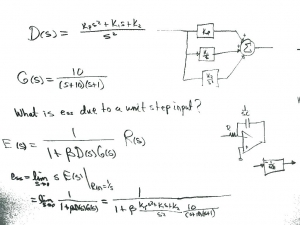 D(s) = (Kp s² + K1 s + K2) / s²
Kp
K1/s
K2/s²
Σ
G(s) = 10 / ((s+10)(s+1))
What is ess due to a unit step input?
E(s) = 1 / (1 + βD(s)G(s)) R(s)
ess = lim s→0 s E(s) | R(s) = 1/s
= lim s→0 1 / (1 + βD(s)G(s)) = 1 / (1 + β (Kp s² + K1 s + K2) / s² 10 / ((s+10)(s+1)))